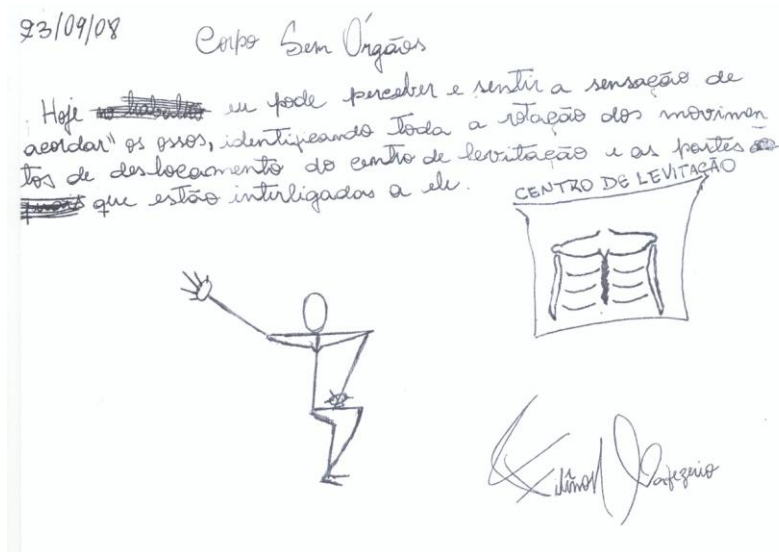 23/09/08
Corpo Sem Órgãos
Hoje eu pode perceber e sentir a sensação de
acordar" os ossos, identificando toda a rotação dos movimen
tos de deslocamento do centro de levitação e as partes
que estão interligadas a ele.
CENTRO DE LEVITAÇÃO